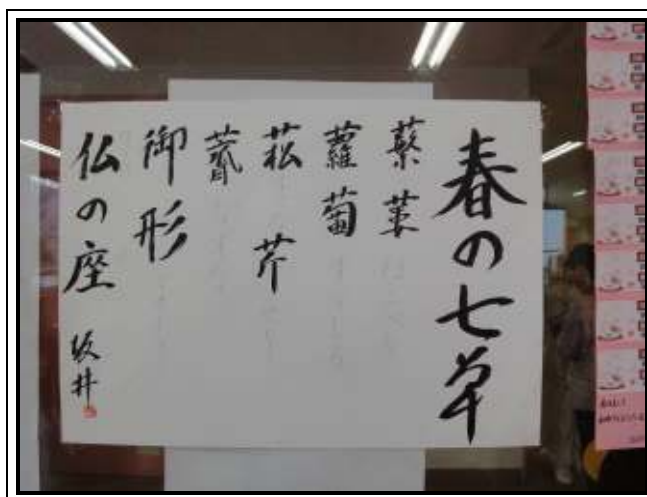 春の七草
蘩蔞
蘿蔔
菘 芹
薺
御形
仏の座 坂井